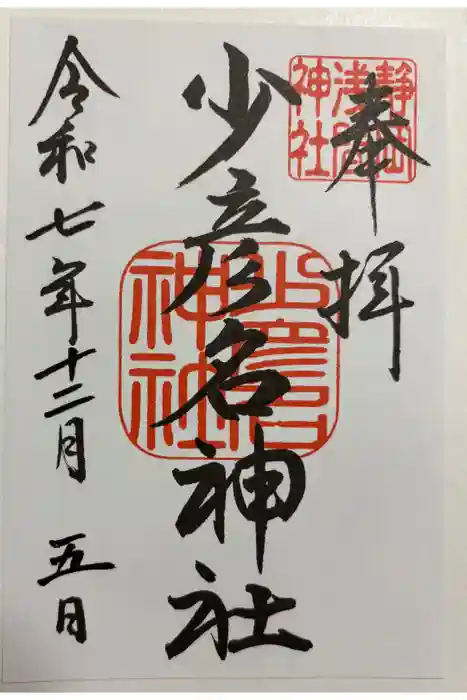 奉拝
静岡
浅間
神社
少彦名神社
少彦名
神社
令和七年十二月 五日